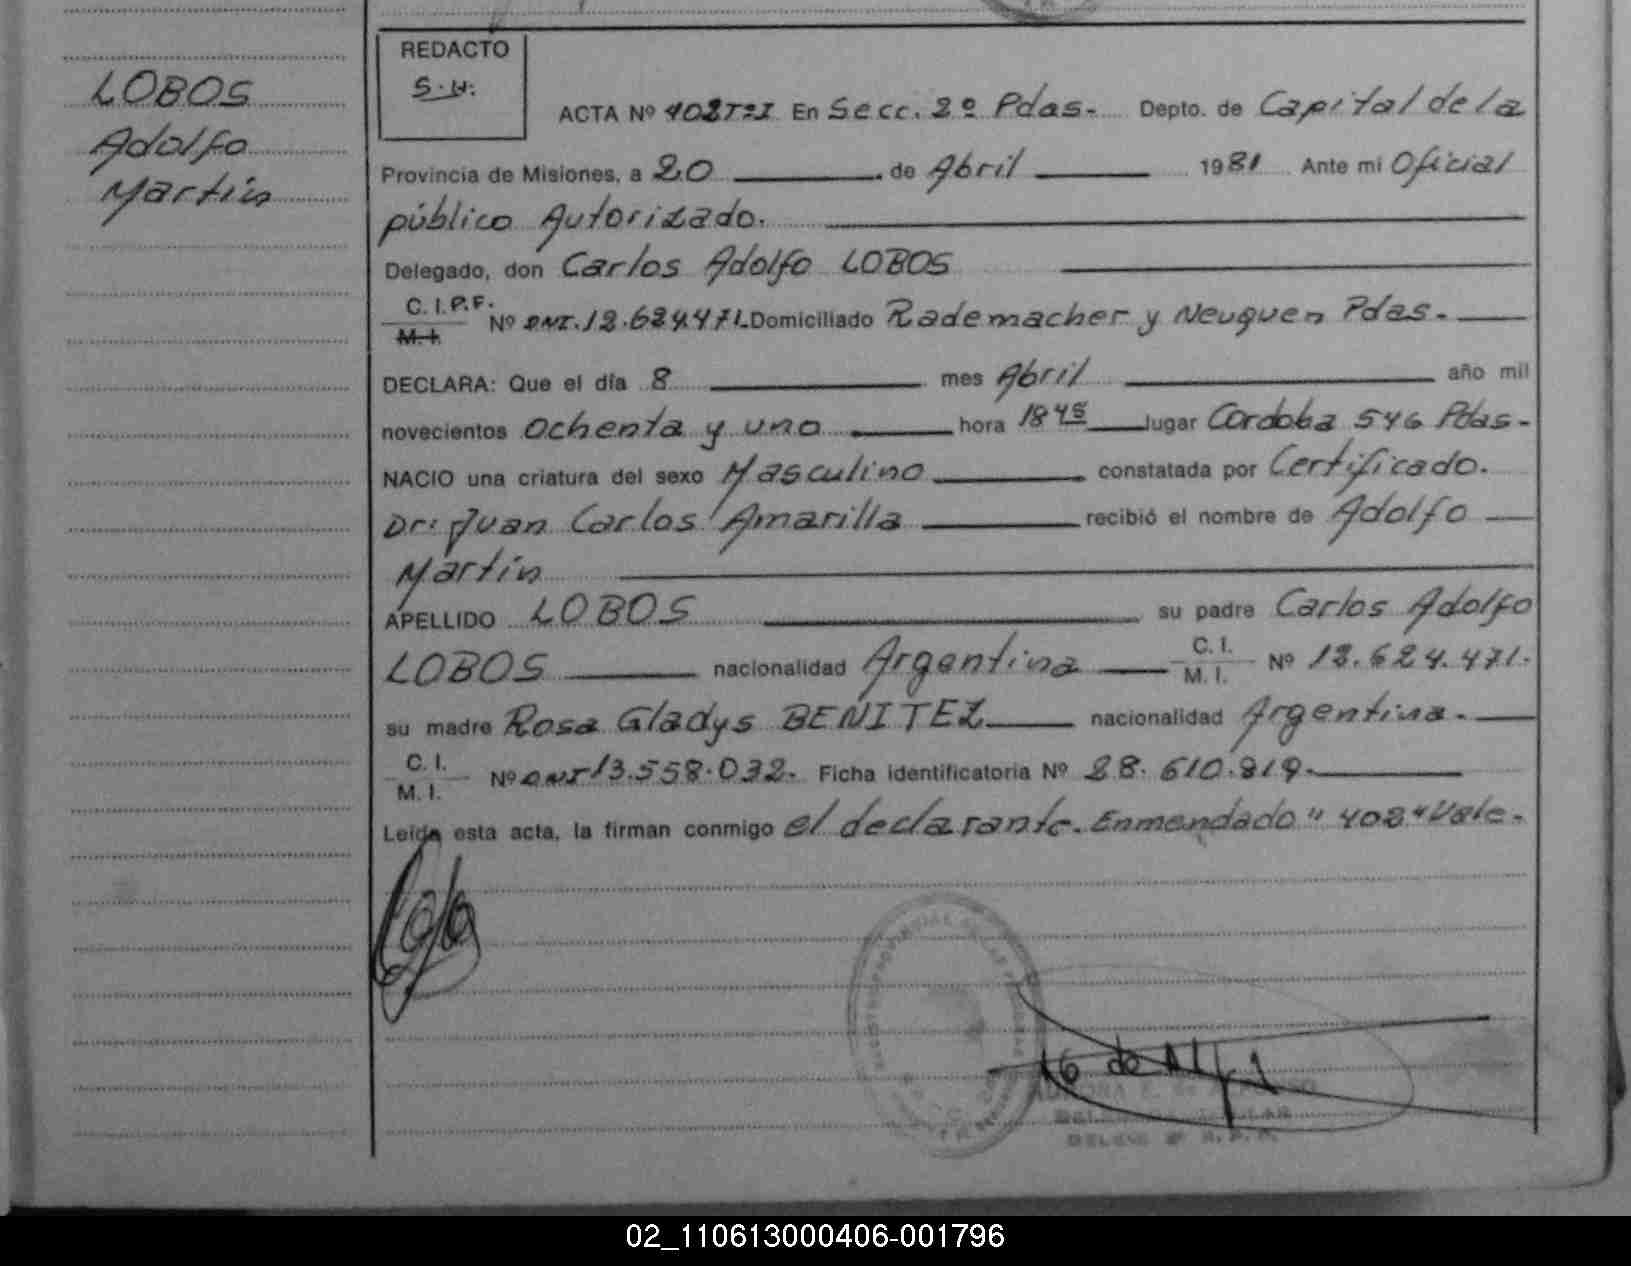 LOBOS
Adolfo
Martín
REDACTO
S.H.
ACTA Nº 402 Tº I En Secc. 2º Pdas.- Depto. de Capital de la
Provincia de Misiones, a 20 de Abril 1981 Ante mi Oficial
público Autorizado.
Delegado, don Carlos Adolfo LOBOS
C. I. P.F.
M. I.
Nº DNI. 12.624.471.- Domiciliado Rademacher y Neuquen Pdas.-
DECLARA: Que el día 8 mes Abril año mil
novecientos ochenta y uno hora 18 45 lugar Cordoba 546 Pdas-
NACIO una criatura del sexo Masculino constatada por Certificado.
Dr: Juan Carlos Amarilla recibió el nombre de Adolfo
Martín
APELLIDO LOBOS su padre Carlos Adolfo
LOBOS nacionalidad Argentina C. I. M. I. Nº 12.624.471.
su madre Rosa Gladys BENITEZ nacionalidad Argentina.-
C. I.
M. I.
Nº DNI 13.558.032. Ficha identificatoria Nº 28.610.819.
Leída esta acta, la firman conmigo el declarante. Enmendado "402" Vale.-
02_110613000406-001796